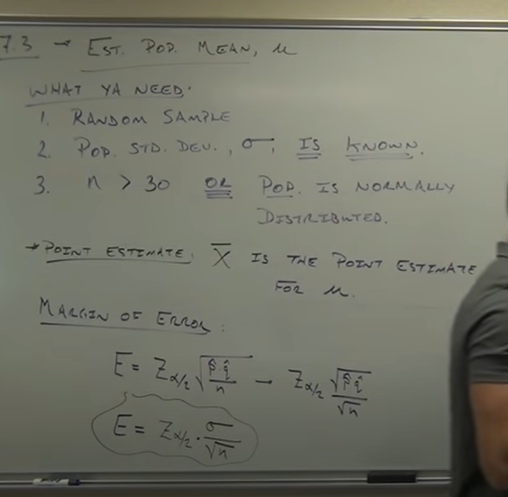 7.3 → EST. POP. MEAN, μ
WHAT YA NEED:
1. RANDOM SAMPLE
2. POP. STD. DEV., σ, IS KNOWN.
3. n > 30 OR POP. IS NORMALLY
DISTRIBUTED.
→ POINT ESTIMATE: X̄ IS THE POINT ESTIMATE
FOR μ.
MARGIN OF ERROR:
E = Z_{α/2} √(p̂ q̂ / n) → Z_{α/2} √(p̂ q̂) / √n
E = Z_{α/2} · σ / √n